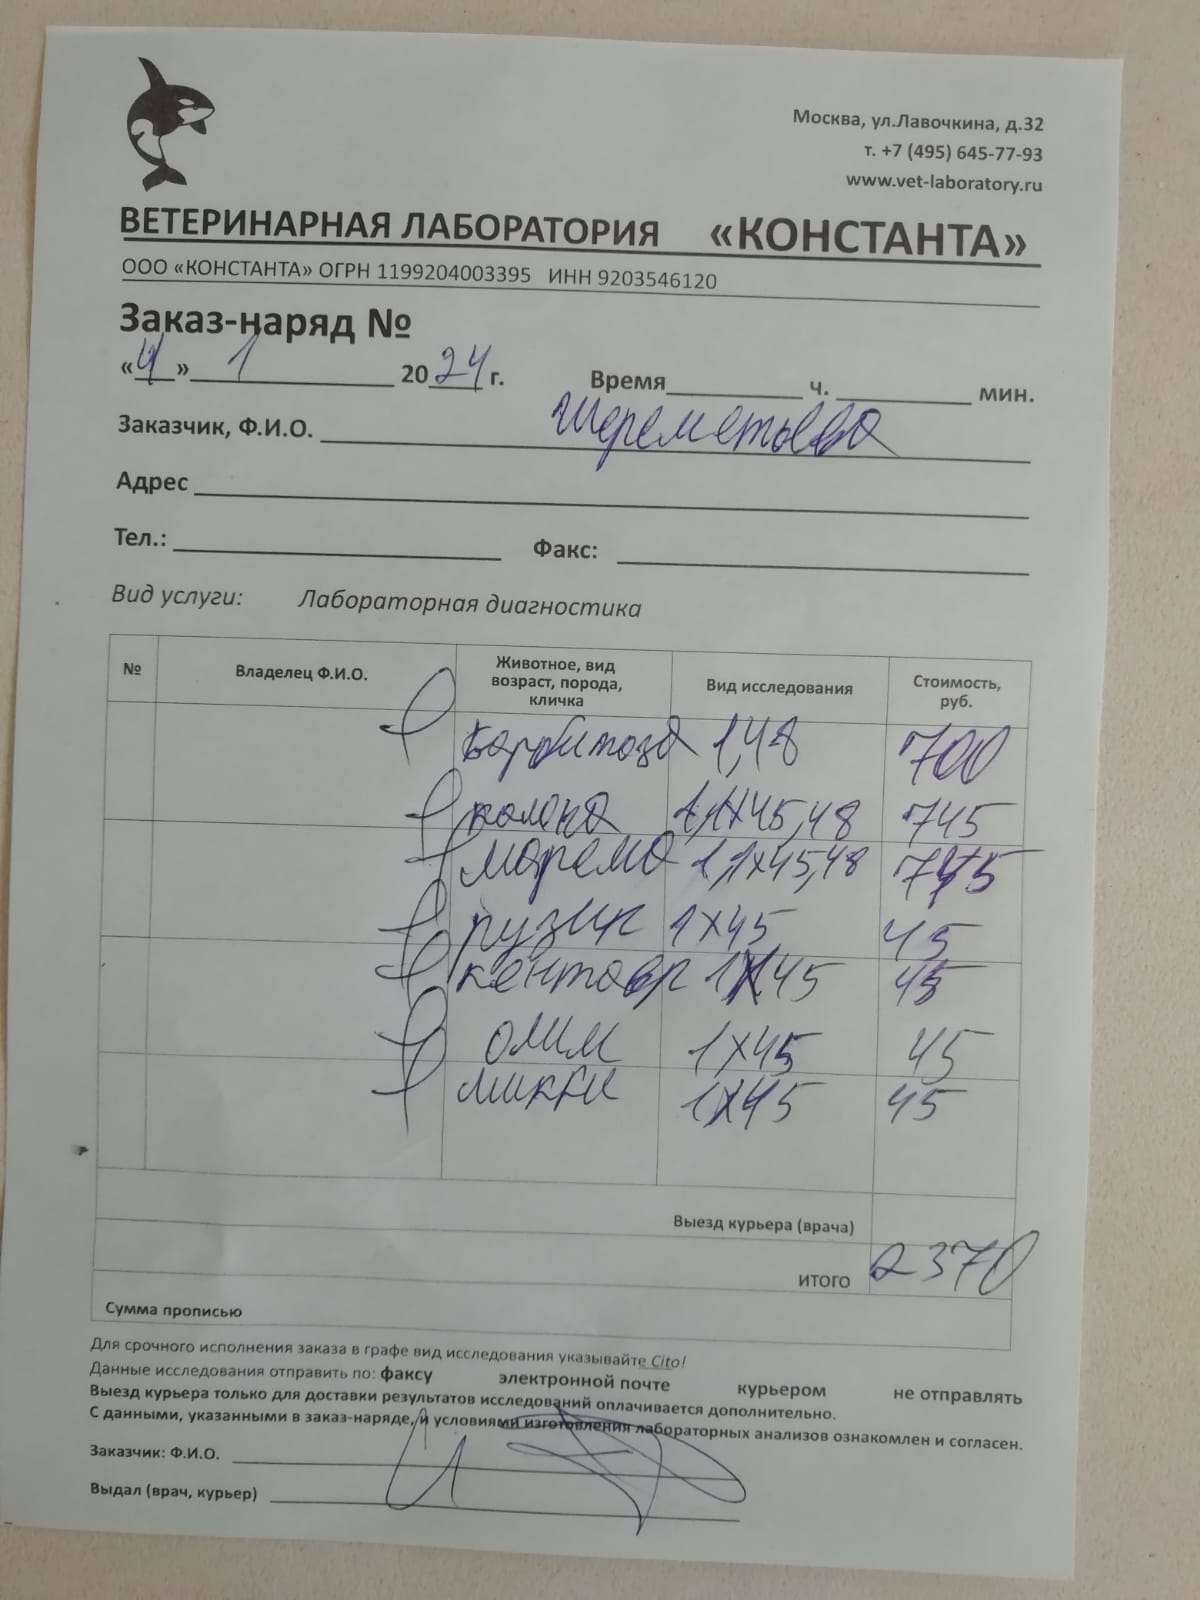 Москва, ул.Лавочкина, д.32
т. +7 (495) 645-77-93
www.vet-laboratory.ru
ВЕТЕРИНАРНАЯ ЛАБОРАТОРИЯ «КОНСТАНТА»
ООО «КОНСТАНТА» ОГРН 1199204003395 ИНН 9203546120
Заказ-наряд №
«4» 1 2024 г. Время ч. мин.
Заказчик, Ф.И.О. Шереметьева
Адрес
Тел.: Факс:
Вид услуги: Лабораторная диагностика
№ Владелец Ф.И.О. Животное, вид возраст, порода, кличка Вид исследования Стоимость, руб.
1,48 700
1,1х45,48 745
марема 1,1х45,48 745
рузик 1х45 45
кентавр 1х45 45
олим 1х45 45
микки 1х45 45
Выезд курьера (врача)
ИТОГО 2370
Сумма прописью
Для срочного исполнения заказа в графе вид исследования указывайте Cito!
Данные исследования отправить по: факсу электронной почте курьером не отправлять
Выезд курьера только для доставки результатов исследований оплачивается дополнительно.
С данными, указанными в заказ-наряде, и условиями изготовления лабораторных анализов ознакомлен и согласен.
Заказчик: Ф.И.О.
Выдал (врач, курьер)